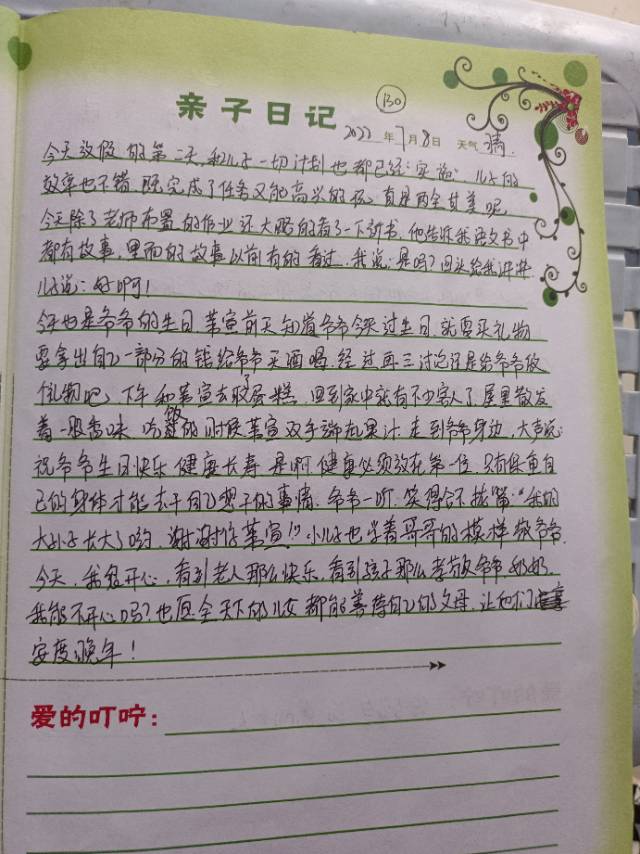 130
亲子日记
2022年7月8日 天气 晴.
今天放假的第二天,和儿子一切计划也都已经实施,儿子的
效率也不错,既完成了任务又能高兴的玩,真是两全其美呢,
今天除了老师布置的作业还大略的看了一下新书,他告诉我语文书中
都有故事,里面的故事以前有的看过,我说:是吗?回头给我讲讲,
儿子说:好啊!
今天也是爷爷的生日,某宣前天知道爷爷今天过生日,就要买礼物
要拿出自己一部分的钱给爷爷买酒喝,经过再三讨论还是给爷爷做
个礼物吧,下午和某宣去取了蛋糕,回到家中就有不少客人了,屋里散发
着一股香味,吃饭的时候某宣双手端起果汁,走到爷爷身边,大声说:
祝爷爷生日快乐,健康长寿,是啊,健康必须放在第一位,只有保重自
己的身体才能去干自己想干的事情,爷爷一听,笑得合不拢嘴:"我的
大孙子长大了哟,谢谢你某宣!"小儿子也学着哥哥的模样敬爷爷.
今天,我很开心,看到老人那么快乐,看到孩子那么孝敬爷爷、奶奶,
我能不开心吗?也愿全天下的儿女都能善待自己的父母,让他们
安度晚年!
爱的叮咛: